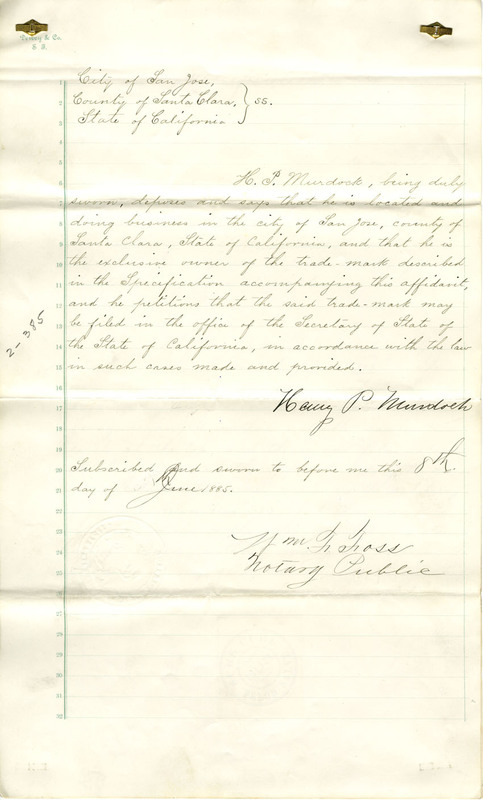 City of San Jose,
County of Santa Clara, } ss.
State of California
H. P. Murdock, being duly
sworn, deposes and says that he is located and
doing business in the city of San Jose, county of
Santa Clara, State of California, and that he is
the exclusive owner of the trade-mark described
in the Specification accompanying this affidavit,
and he petitions that the said trade-mark may
be filed in the office of the Secretary of State of
the State of California, in accordance with the law
in such cases made and provided.
2-385
Henry P. Murdock
Subscribed and sworn to before me this 8th.
day of June 1885.
Wm. Foss
Notary Public
1
2
3
4
5
6
7
8
9
10
11
12
13
14
15
16
17
18
19
20
21
22
23
24
25
26
27
28
29
30
31
32